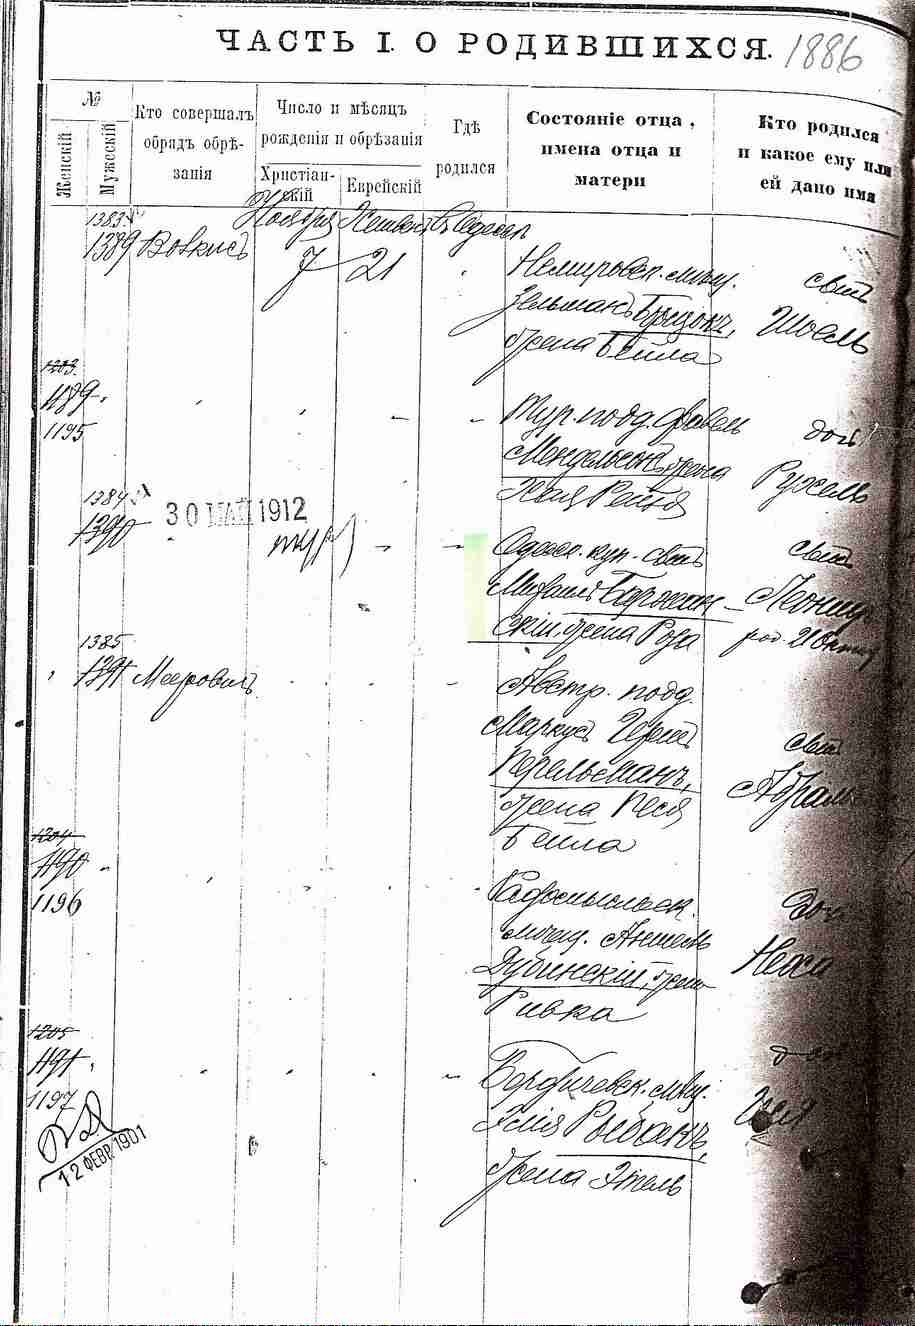 ЧАСТЬ I. О РОДИВШИХСЯ. 1886
№
Женскій
Мужескій
Кто совершалъ
обрядъ обрѣ-
занія
Число и мѣсяцъ
рожденія и обрѣзанія
Христіан-
скій
Еврейскій
Гдѣ
родился
Состояніе отца,
имена отца и
матери
Кто родился
и какое ему или
ей дано имя
1383
Ноября
въ Одессѣ
1389 Вовкисъ 7 21
Немировск. мѣщ. сынъ
Зельманъ
жена Бейла
Шоель
1203.
1189.
1195
Тур. подд. Фавель дочь
Мендельсонъ, жена
Хая Рейзя
Рухель
1384
1390
30 МАЙ 1912
Одесск. куп. сынъ сынъ
Михаилъ
скій, жена Роза
род. 21 Октяб
1385
1391 Мееровичъ
Австр. подд.
Маркусъ Гершъ сынъ
Перельсманъ,
жена Песя
Бейла
Абрамъ
1204
1190
1196
Радомысльск. дочь
мѣщ. Аншель
Дубинскій, жена
Ривка
Неха
1205
1191
1197
Бердичевск. мѣщ.
Илія Рыбакъ,
жена Этель
12 ФЕВР. 1901